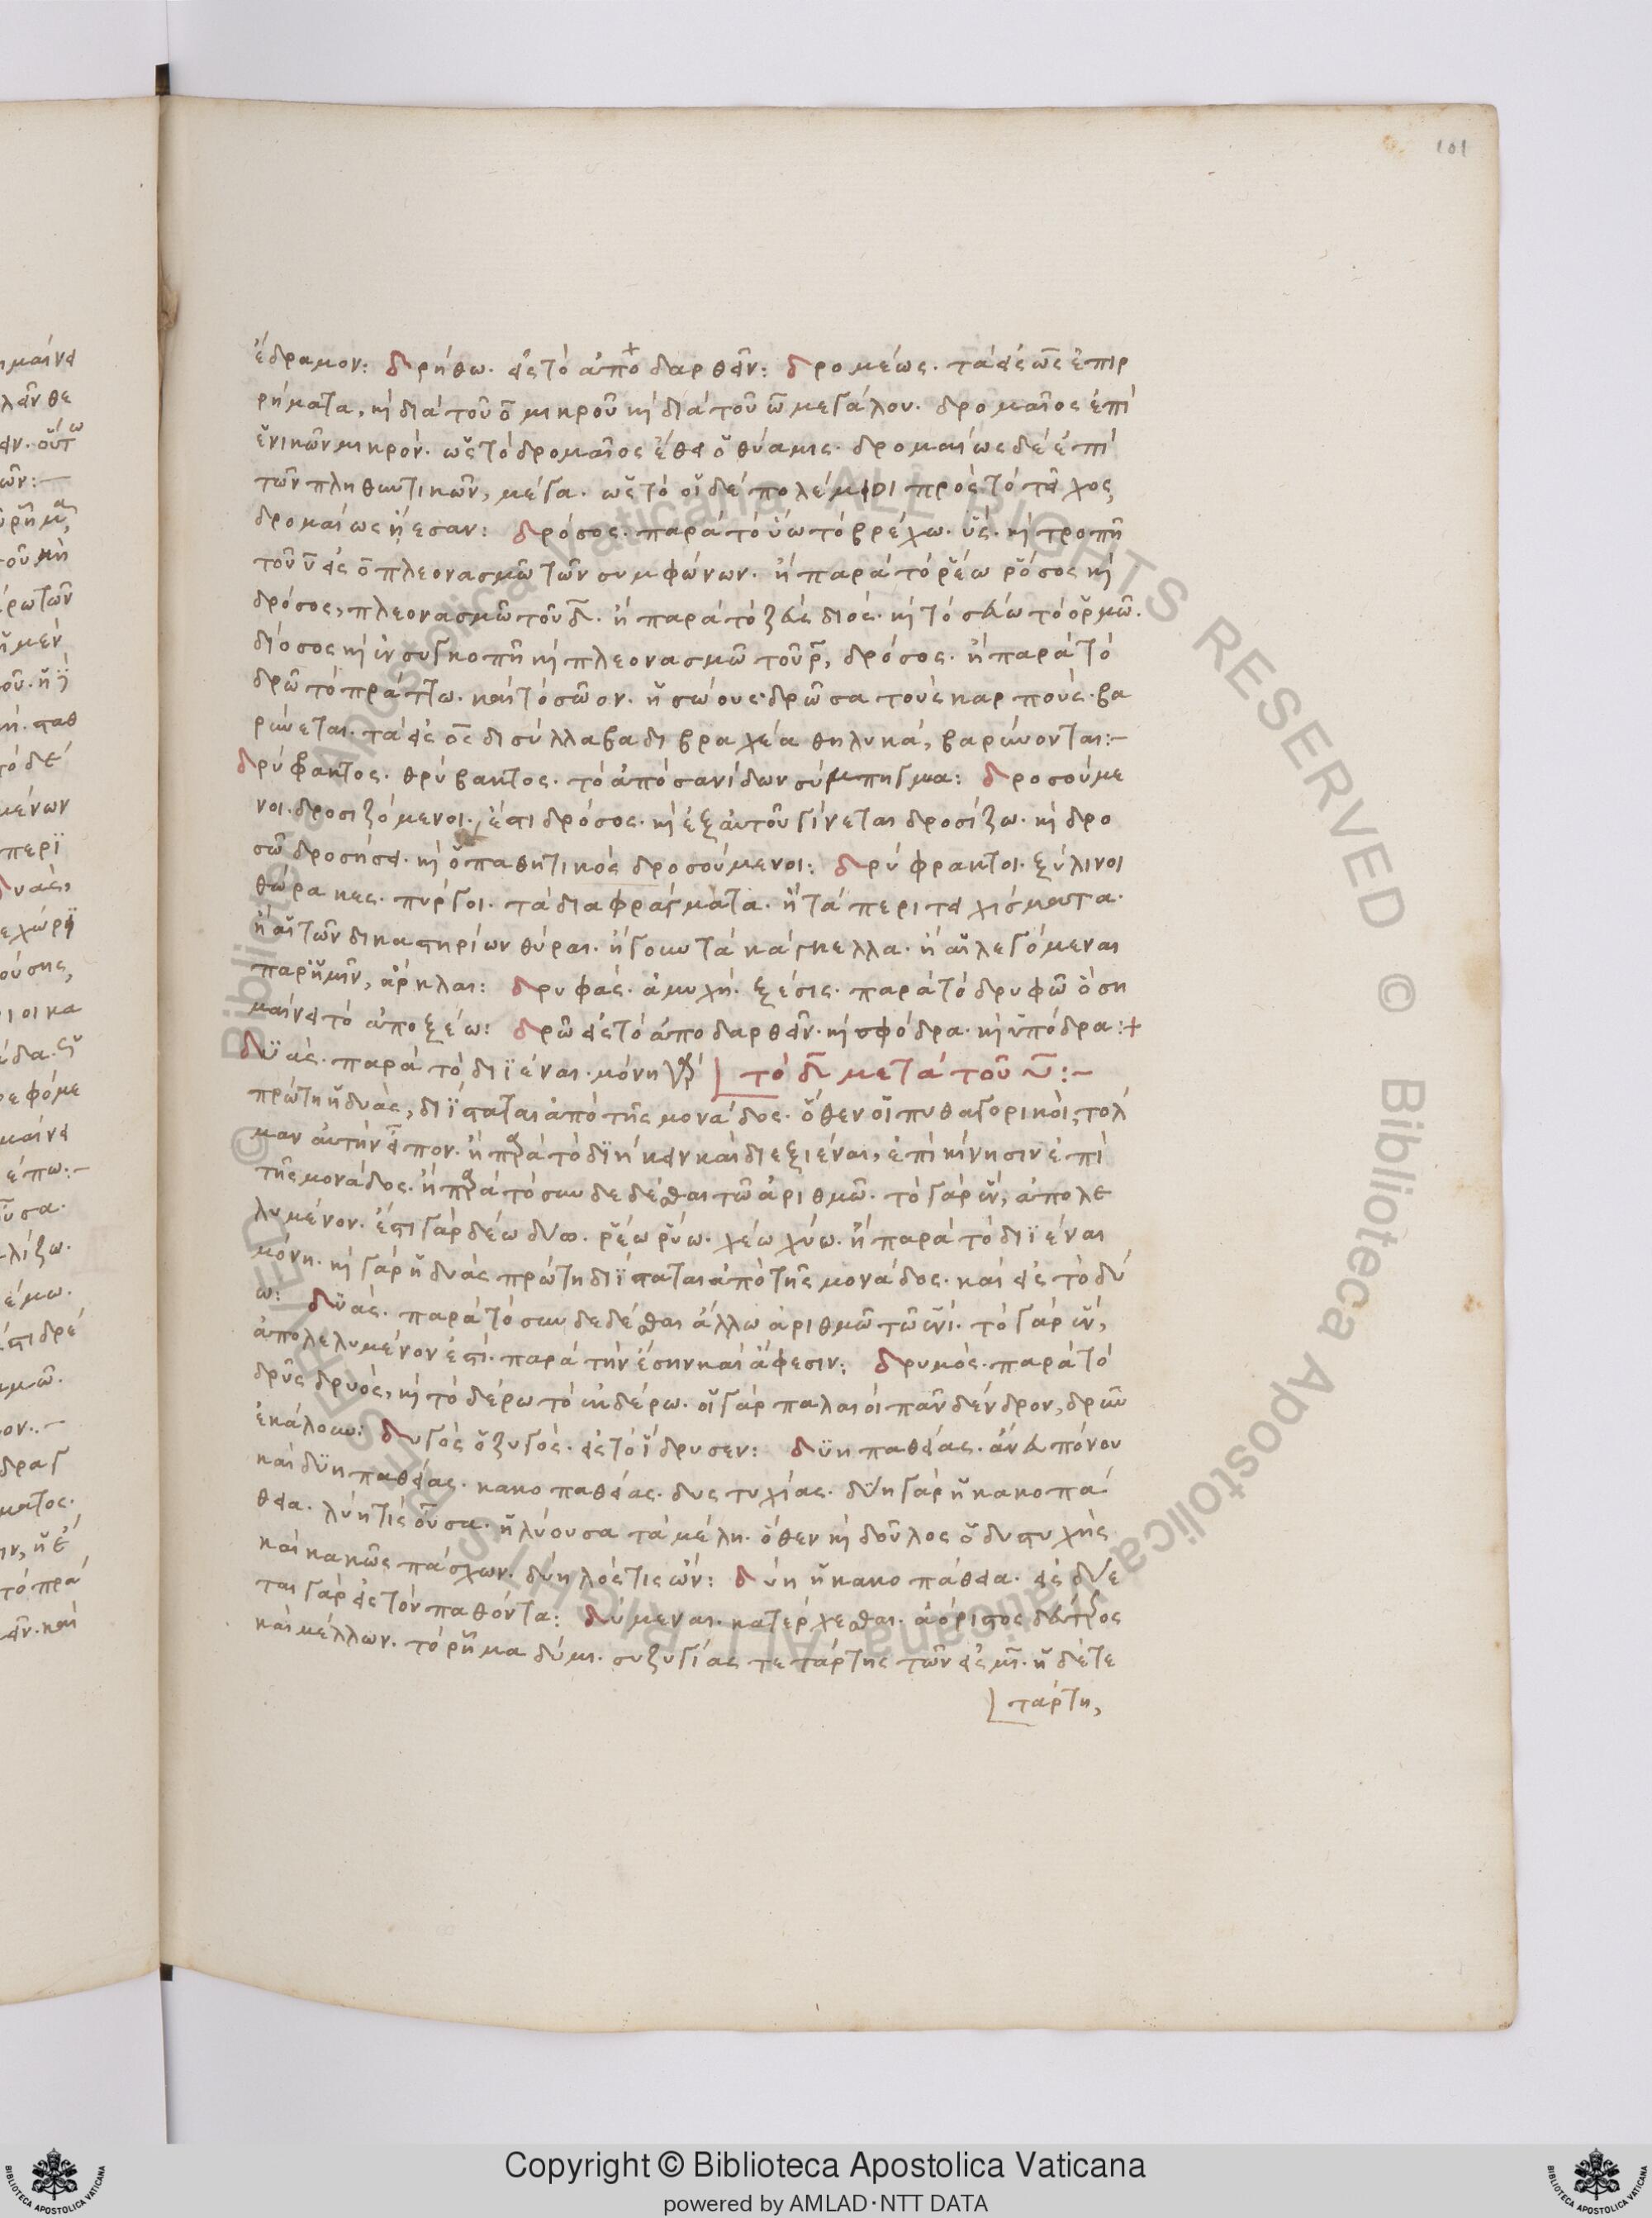 101
ἔδραμον: δρήθω. εἰς τὸ ἀπο δαρθεῖν: δρομέως. τὰ εἰς ως ἐπιρ
ρήματα, καὶ διὰ τοῦ ο μικροῦ καὶ διὰ τοῦ ω μεγάλου. δρομαῖος ἐπὶ
ἑνικῶν μικρόν. ὡς τὸ δρομαῖος ἔθει ὁ θύαμις. δρομαίως δὲ ἐπὶ
τῶν πληθυντικῶν, μέγα. ὡς τὸ οἱ δὲ πολέμιοι πρὸς τὸ τεῖχος
δρομαίως ᾔεσαν: δρόσος. παρὰ τὸ ὕω τὸ βρέχω. ὗς. καὶ τροπῇ
τοῦ υ εἰς ο πλεονασμῶ τῶν συμφώνων. ἢ παρὰ τὸ ῥέω ῥόσος καὶ
δρόσος, πλεονασμῶ τοῦ δ. ἢ παρὰ τὸ ζεὺς διός. καὶ τὸ σεύω τὸ ὁρμῶ.
δίοσος καὶ ἐν συγκοπῇ καὶ πλεονασμῶ τοῦ ρ, δρόσος. ἢ παρὰ τὸ
δρῶ τὸ πράττω. καὶ τὸ σῶον. ἡ σώους δρῶσα τοὺς καρπούς. βα
ρύνεται. τὰ εἰς ος δισύλλαβα διβραχέα θηλυκά, βαρύνονται:-
δρύβακτος. θρύβακτος. τὸ ἀπὸ σανίδων σύμπηγμα: δροσούμε
νοι. δροσιζόμενοι. ἔστι δρόσος. καὶ ἐξ αὐτοῦ γίνεται δροσίζω. καὶ δρο
σῶ δροσήσει. καὶ ὁ παθητικὸς δροσούμενοι: δρύφρακτοι. ξύλινοι
θώρακες. πύργοι. τὰ διαφράγματα. ἢ τὰ περιτειχίσματα.
ἢ αἱ τῶν δικαστηρίων θύραι. ἤγουν τὰ κάγκελλα. ἢ αἱ λεγόμεναι
παρ' ἡμῖν, ἄρκλαι: δρυφάς. ἀμυχή. ξέσις. παρὰ τὸ δρυφῶ ὃ ση
μαίνει τὸ ἀποξέω: δρῶ εἰς τὸ ἀποδαρθεῖν. καὶ σφόδρα. καὶ ὑπόδρα:+
δϋὰς. παρὰ τὸ διϊέναι. μόνη γὰρ τὸ δ μετὰ τοῦ υ:-
πρώτη ἡ δυὰς, διΐσταται ἀπὸ τῆς μονάδος. ὅθεν οἱ πυθαγορικοὶ, τολ
μαν αὐτὴν εἶπον. ἢ παρὰ τὸ διήκειν καὶ διεξιέναι, ἐπὶ κίνησιν ἐπὶ
τῆς μονάδος. ἢ παρὰ τὸ συνδεδέσθαι τῶ ἀριθμῶ. τὸ γὰρ ἓν, ἀπολε
λυμένον. ἔστι γὰρ δέω δύω. ῥέω ῥύω. χέω χύω. ἢ παρὰ τὸ διϊέναι
μόνη. καὶ γὰρ ἡ δυὰς πρώτη διΐσταται ἀπὸ τῆς μονάδος. καὶ εἰς τὸ δύ
ω: δϋάς. παρὰ τὸ συνδεδέσθαι ἄλλω ἀριθμῶ τῶ ἑνί. τὸ γὰρ ἓν,
ἀπολελυμένον ἐστί. παρὰ τὴν ἕσην καὶ ἄφεσιν: δρυμός. παρὰ τὸ
δρῦς δρυός, καὶ τὸ δέρω τὸ ἐκδέρω. οἱ γὰρ παλαιοὶ πᾶν δένδρον, δρῦν
ἐκάλουν: δυγὸς ὁ ζυγός. εἰς τὸ ἵδρυσεν: δϋηπαθείας. ἄνευ πόνου
καὶ δϋηπαθείας. κακοπαθείας. δυστυχίας. δύη γὰρ ἡ κακοπά
θεια. λύη τις οὖσα. ἡ λύουσα τὰ μέλη. ὅθεν καὶ δοῦλος ὁ δυστυχὴς
καὶ κακῶς πάσχων. δύηλός τις ὤν: δύη ἡ κακοπάθεια. εἰσδύε
ται γὰρ εἰς τὸν παθόντα: δύμεναι. κατέρχεσθαι. ἀόριστος δεύτερος
καὶ μέλλων. τὸ ῥῆμα δύμι. συζυγίας τετάρτης τῶν εἰς μι. ἡ δὲ τε
τάρτη,
Copyright © Biblioteca Apostolica Vaticana
powered by AMLAD·NTT DATA